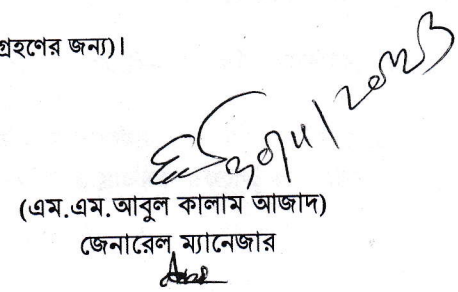 গ্রহণের জন্য)।
(এম.এম.আবুল কালাম আজাদ)
জেনারেল ম্যানেজার